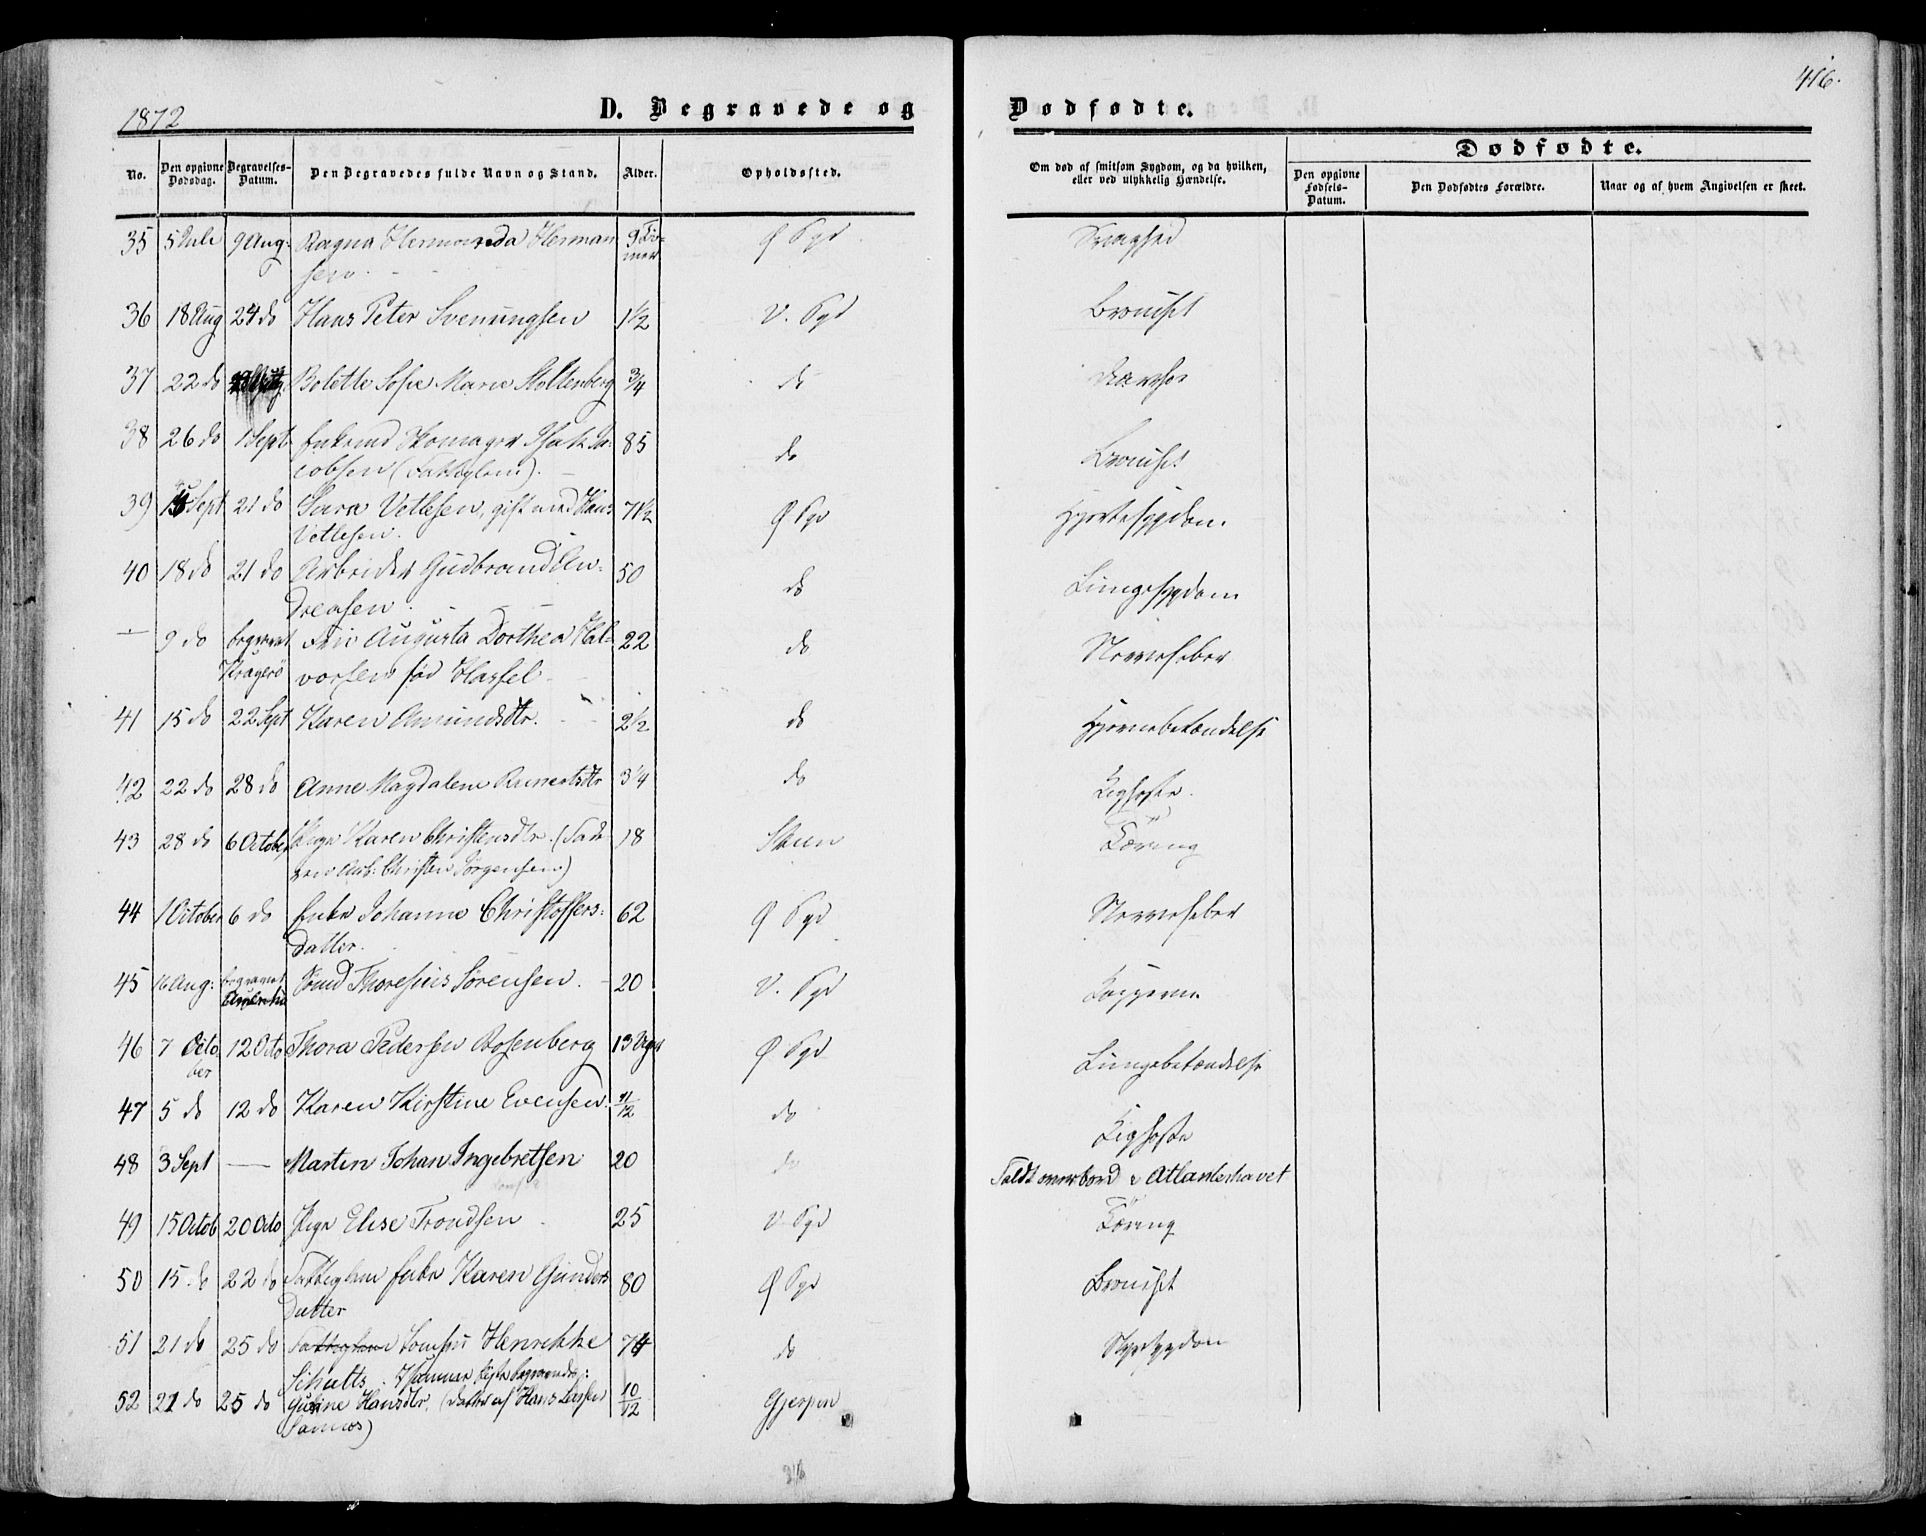 1872
D. Begravede og
Dødfødte.
416.
No.
Den opgivne Dødsdag.
Begravelses-Datum.
Den Begravedes fulde Navn og Stand.
Alder.
Opholdssted.
Om død af smitsom Sygdom, og da hvilken, eller ved ulykkelig Hændelse.
Dødfødte.
Den opgivne Fødsels-Datum.
Den Dødfødtes Forældre.
Naar og af hvem Angivelsen er skeet.
35 5 Juli 9 Aug: Ragna Hermanda Herman 9 Ti- Ø Pgd Svaghed
sen. mer
36 18 Aug 24 do Hans Peter Svenungsen 1½ V. Pgd Brouist
37 22 do Bolette Sofie Marie Stoltenberg ¾ do
38 26 do 1 Sept Enkemd Skomager Isak Ja 85 do
cobsen (Fattiglem).
39 Sept 21 do Sara Vetlesen, gift med Hans 71½ Ø Pgd Hjertesygdom.
Vetlesen.
40 18 do 21 do Arbeider Gudbrand An- 50 do Lungesygdom
dreasen.
— 9 do begravet Fru Augusta Dorthea Hal- 22 do Nervefeber
Kragerö vorsen fød Hassel
41 15 do 22 Sept Karen Amundsdtr. 2½ do Hjernebetændelse
42 22 do 28 do Anne Magdalene Reinertsdtr 3¼ do Kighoste.
43 28 do 6 October Pige Karen Christensdtr. (Fad- 18 Skien Tæring
eren Arb: Christen Jörgensen)
44 1 October 6 do Enke Johanne Christoffers- 62 Ø Pgd Nervefeber
datter.
45 16 Aug: begravet Thoresius Sörensen. 20 V. Pgd Kopperne
Amerika
46 7 Octo 12 Octo Thora Pedersen Rosenberg 13 Uger Ø Pgd Lungebetændelse
ber
47 5 do 12 do Karen Kirstine Evensen. 11/12 do Kighoste
48 3 Sept — Martin Johan Ingebretsen 20 do Faldt overbord i Atlanterhavet
49 15 Octob 20 Octo Pige Elise Trondsen 25 V. Pgd Tæring
50 15 do 22 do Fattiglem Enke Karen Gunders 80 Ø Pgd
Datter
51 21 do 25 do Fattiglem Henrikke 74 do
Schults.
52 21 do 25 do Hansdtr. (datter af Hans Larsen 10/12 Gjerpen